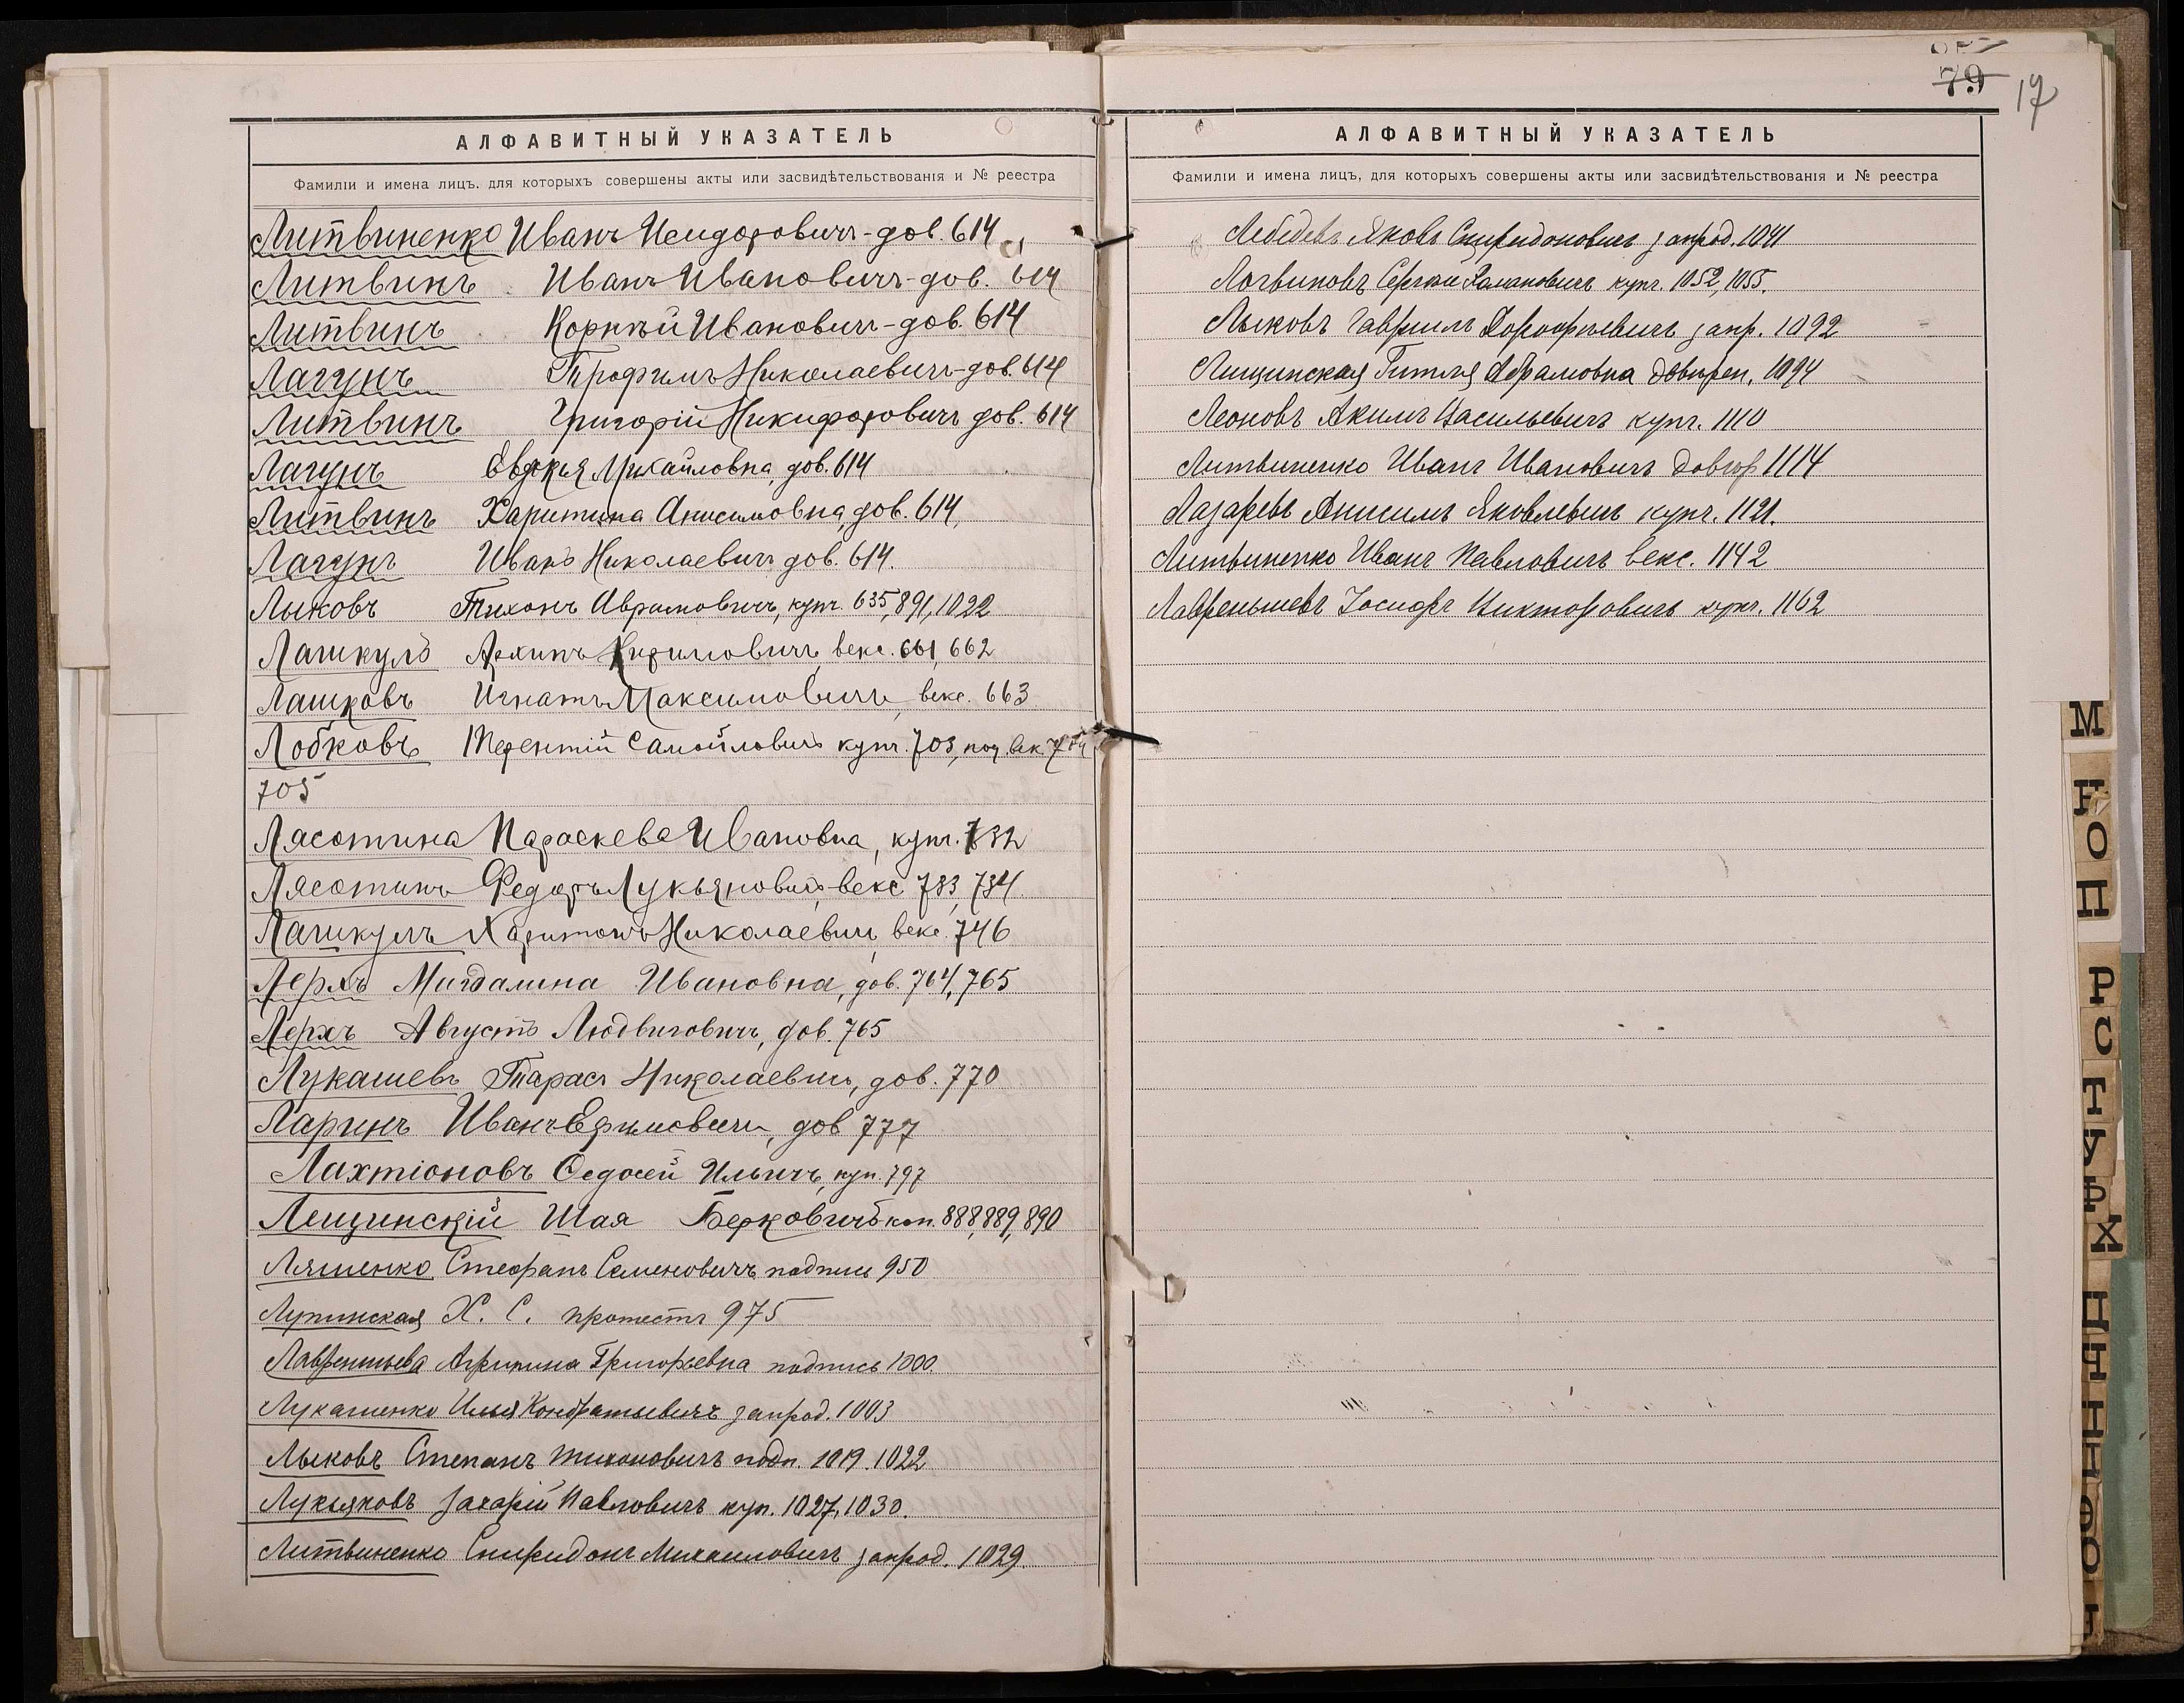 АЛФАВИТНЫЙ УКАЗАТЕЛЬ
Фамиліи и имена лицъ, для которыхъ совершены акты или засвидѣтельствованія и № реестра
Литвиненко Иванъ Исидоровичъ - дов. 614
Литвинъ Иванъ Ивановичъ - дов. 614
Литвинъ Корнѣй Ивановичъ - дов. 614
Лагунъ Трофимъ Николаевичъ - дов. 614
Литвинъ Григорій Никифоровичъ дов. 614
Лагунъ Евдокія Михайловна, дов. 614
Литвинъ Харитина Анисимовна, дов. 614,
Лагунъ Иванъ Николаевичъ дов. 614.
Лыковъ Тихонъ Аврамовичъ, купч. 635, 891, 1022
Лашкулъ Архипъ векс. 661, 662
Лашковъ Игнатъ Максимовичъ, векс. 663
Лобковъ Терентій Самойловичъ купч. 703, век. 704
705
Лясотина Параскева Ивановна, купч. 732
Лясотинъ Федоръ Лукьяновичъ, векс 733, 734
Лашкулъ Харитонъ Николаевич, векс. 746
Лерхъ Магдалина Ивановна, дов. 764, 765
Лерхъ Августъ Людвиговичъ, дов. 765
Лукашевъ Тарасъ Николаевичъ, дов. 770
Ларинъ Иванъ Ефимовичъ, дов 777
Лахтіоновъ Ѳедосей Ильичъ, куп. 797
Лещинскій Шая Берковичъ коп. 888, 889, 890
Ляшенко Стефанъ Семеновичъ подпись 950
Лупинская Х. С. протестъ 975
Лаврентьева Агрипина Григорьевна подпись 1000.
Лукашенко Илья Кондратьевичъ запрод. 1003
Лыковъ Степанъ Тихоновичъ подп. 1019. 1022
Лукьяновъ Захарій Павловичъ куп. 1027, 1030.
Литвиненко Спиридонъ Михаиловичъ запрод. 1029.
79 17
АЛФАВИТНЫЙ УКАЗАТЕЛЬ
Фамиліи и имена лицъ, для которыхъ совершены акты или засвидѣтельствованія и № реестра
Лебедевъ Яковъ Спиридоновичъ запрод. 1041
Логвиновъ Сергѣй купч. 1052, 1055.
Лыковъ Гавріилъ Дорофѣевичъ запр. 1092
Лищинская Гитля Абрамовна довѣрен. 1094
Леоновъ Акимъ Васильевичъ купч. 1110
Литвиненко Иванъ Ивановичъ 1114
Лазаревъ Анисимъ Яковлевичъ купч. 1121.
Литвиненко Иванъ Павловичъ векс. 1142
Іосифъ Викторовичъ купч. 1162
М
Н
О
П
Р
С
Т
У
Ф
Х